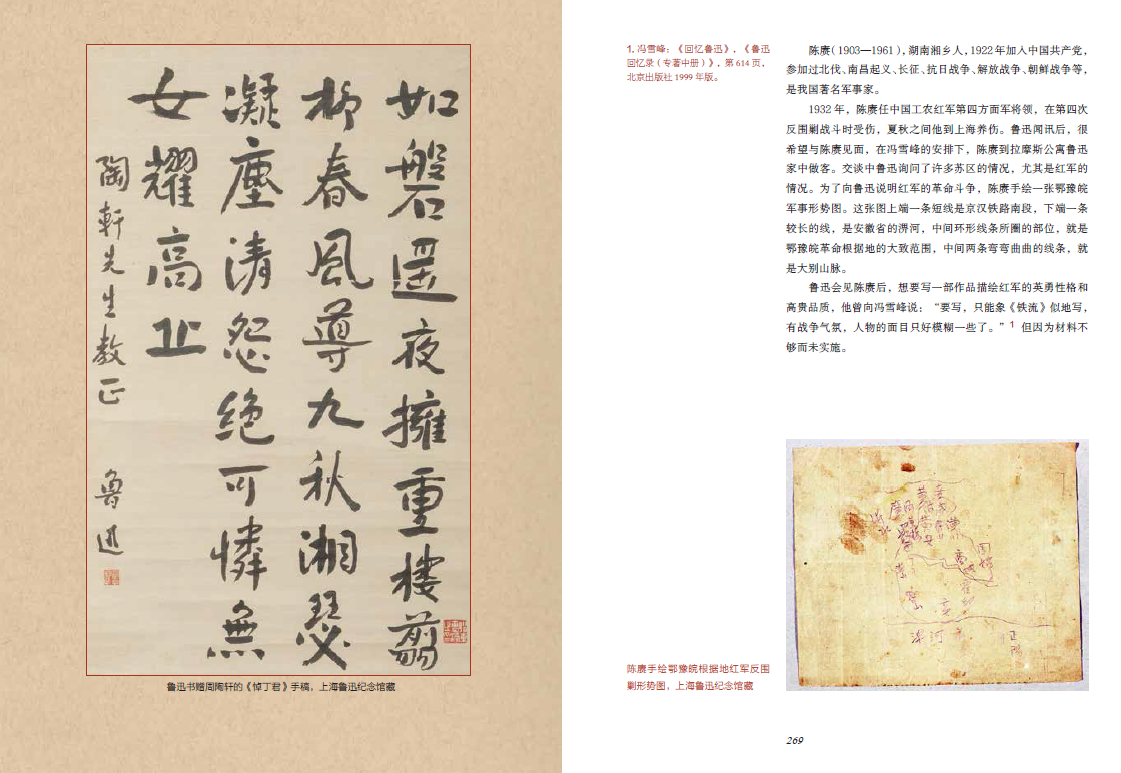 如磐遥夜擁重樓翦
柳春風導九秋湘瑟
凝塵清怨絕可憐無
女耀高丘
陶軒先生教正
魯迅
鲁迅书赠周陶轩的《悼丁君》手稿，上海鲁迅纪念馆藏
1. 冯雪峰：《回忆鲁迅》，《鲁迅
回忆录（专著中册）》，第 614 页，
北京出版社 1999 年版。
陈赓（1903—1961），湖南湘乡人，1922 年加入中国共产党，
参加过北伐、南昌起义、长征、抗日战争、解放战争、朝鲜战争等，
是我国著名军事家。
1932 年，陈赓任中国工农红军第四方面军将领，在第四次
反围剿战斗时受伤，夏秋之间他到上海养伤。鲁迅闻讯后，很
希望与陈赓见面，在冯雪峰的安排下，陈赓到拉摩斯公寓鲁迅
家中做客。交谈中鲁迅询问了许多苏区的情况，尤其是红军的
情况。为了向鲁迅说明红军的革命斗争，陈赓手绘一张鄂豫皖
军事形势图。这张图上端一条短线是京汉铁路南段，下端一条
较长的线，是安徽省的淠河，中间环形线条所圈的部位，就是
鄂豫皖革命根据地的大致范围，中间两条弯弯曲曲的线条，就
是大别山脉。
鲁迅会见陈赓后，想要写一部作品描绘红军的英勇性格和
高贵品质，他曾向冯雪峰说：“要写，只能象《铁流》似地写，
有战争气氛，人物的面目只好模糊一些了。”1 但因为材料不
够而未实施。
陈赓手绘鄂豫皖根据地红军反围
剿形势图，上海鲁迅纪念馆藏
269